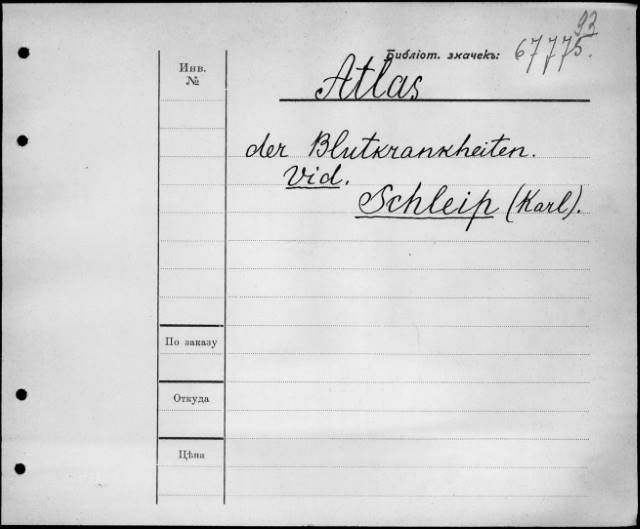 93
Библіот. значекъ: 67775.
Инв.
№
Atlas
der Blutkrankheiten.
Vid.
Schleip (Karl).
По заказу
Откуда
Цѣна